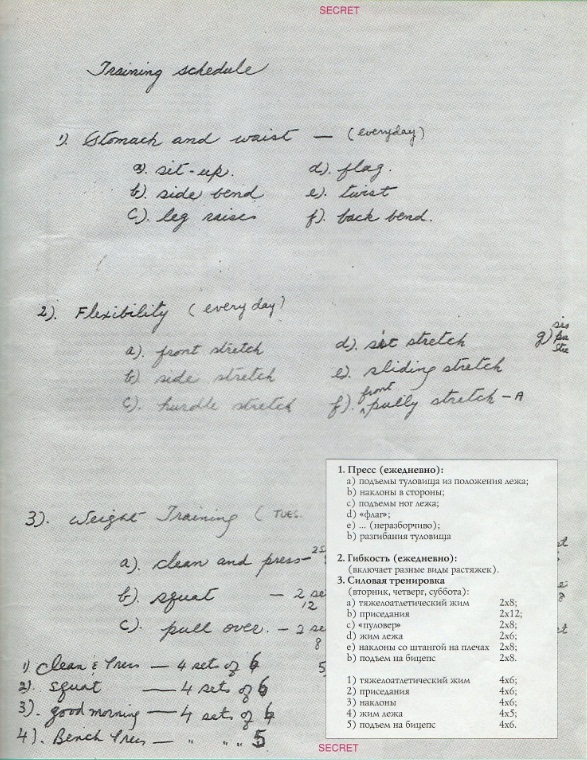 SECRET
Training schedule
1). Stomach and waist — (everyday)
a). sit-up.
b). side bend
c). leg raises
d). flag.
e). twist
f). back bend.
2). Flexibility (every day)
a). front stretch
b). side stretch
c). hurdle stretch
d). sit stretch
e). sliding stretch
f). front pully stretch - A
g)
3). Weight Training (TUES.
a). clean and press-
b). squat — 2 se
12
c). pull over. — 2 se
8
1) Clean & Press — 4 set of 6
2). squat — 4 sets of 6
3). good morning — 4 sets of 6
4). Bench Press — " " " 5
1. Пресс (ежедневно):
a) подъемы туловища из положения лежа;
b) наклоны в стороны;
c) подъемы ног лежа;
d) «флаг»;
e) ... (неразборчиво);
b) разгибания туловища
2. Гибкость (ежедневно):
(включает разные виды растяжек).
3. Силовая тренировка
(вторник, четверг, суббота):
a) тяжелоатлетический жим 2x8;
b) приседания 2x12;
c) «пуловер» 2x8;
d) жим лежа 2x6;
e) наклоны со штангой на плечах 2x8;
b) подъем на бицепс 2x8.
1) тяжелоатлетический жим 4x6;
2) приседания 4x6;
3) наклоны 4x6;
4) жим лежа 4x5;
5) подъем на бицепс 4x6.
SECRET